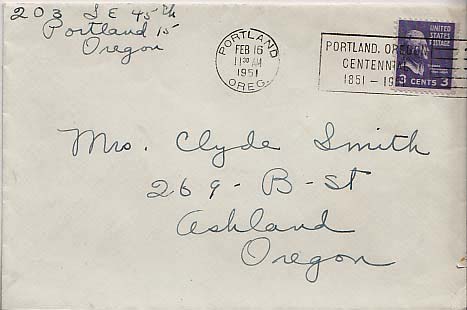 203 S E 45th
Portland 15
Oregon
PORTLAND
FEB 16
11 30 AM
1951
OREG.
PORTLAND, OREGON
CENTENNIAL
1851 - 1951
UNITED
STATES
POSTAGE
3 CENTS 3
Mrs. Clyde Smith
269 - B - St
Ashland
Oregon